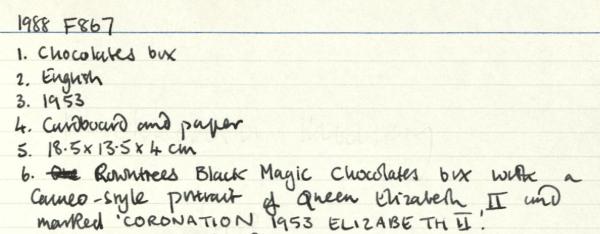 1988 F867
1. Chocolates box
2. English
3. 1953
4. Cardboard and paper
5. 18.5 x 13.5 x 4 cm
6. Rowntrees Black Magic Chocolates box with a
Cameo-style portrait of Queen Elizabeth II and
marked 'CORONATION 1953 ELIZABETH II'.